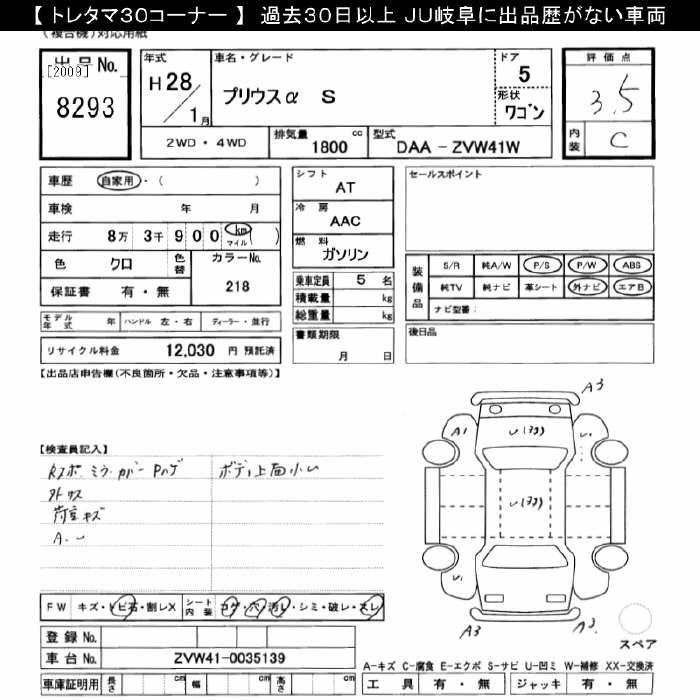 【 トレタマ30コーナー 】 過去30日以上 JU岐阜に出品歴がない車両
(複合機)対応用紙
出品No.
[2009]
8293
年式
H28/1月
車名・グレード
プリウスα S
ドア
5
形状
ワゴン
評価点
3.5
内装
C
2WD・4WD
排気量 1800 cc
型式 DAA-ZVW41W
車歴 自家用・( )
車検 年 月
走行 8万 3千 9 0 0 km マイル ( )
色 クロ
色替
カラーNo. 218
保証書 有・無
シフト AT
冷房 AAC
燃料 ガソリン
乗車定員 5 名
積載量 kg
総重量 kg
書類期限
月 日
セールスポイント
装備品
S/R 純A/W P/S P/W ABS
純TV 純ナビ 革シート 外ナビ エアB
ナビ型番:
後日品
モデル年式 年 ハンドル 左・右 ディーラー・並行
リサイクル料金 12,030 円 預託済
【出品店申告欄(不良箇所・欠品・注意事項等)】
【検査員記入】
ボディ上面小U
外キズ
荷室キズ
A.U
A3
A1
A3
A3
FW キズ・トビ石・割レX シート内装 コゲ・穴・汚レ・シミ・破レ・スレ
登録No.
車台No. ZVW41-0035139
車庫証明用 長さ cm 幅 cm 高さ cm
スペア
A-キズ C-腐食 E-エクボ S-サビ U-凹ミ W-補修 XX-交換済
工具 有・無 ジャッキ 有・無